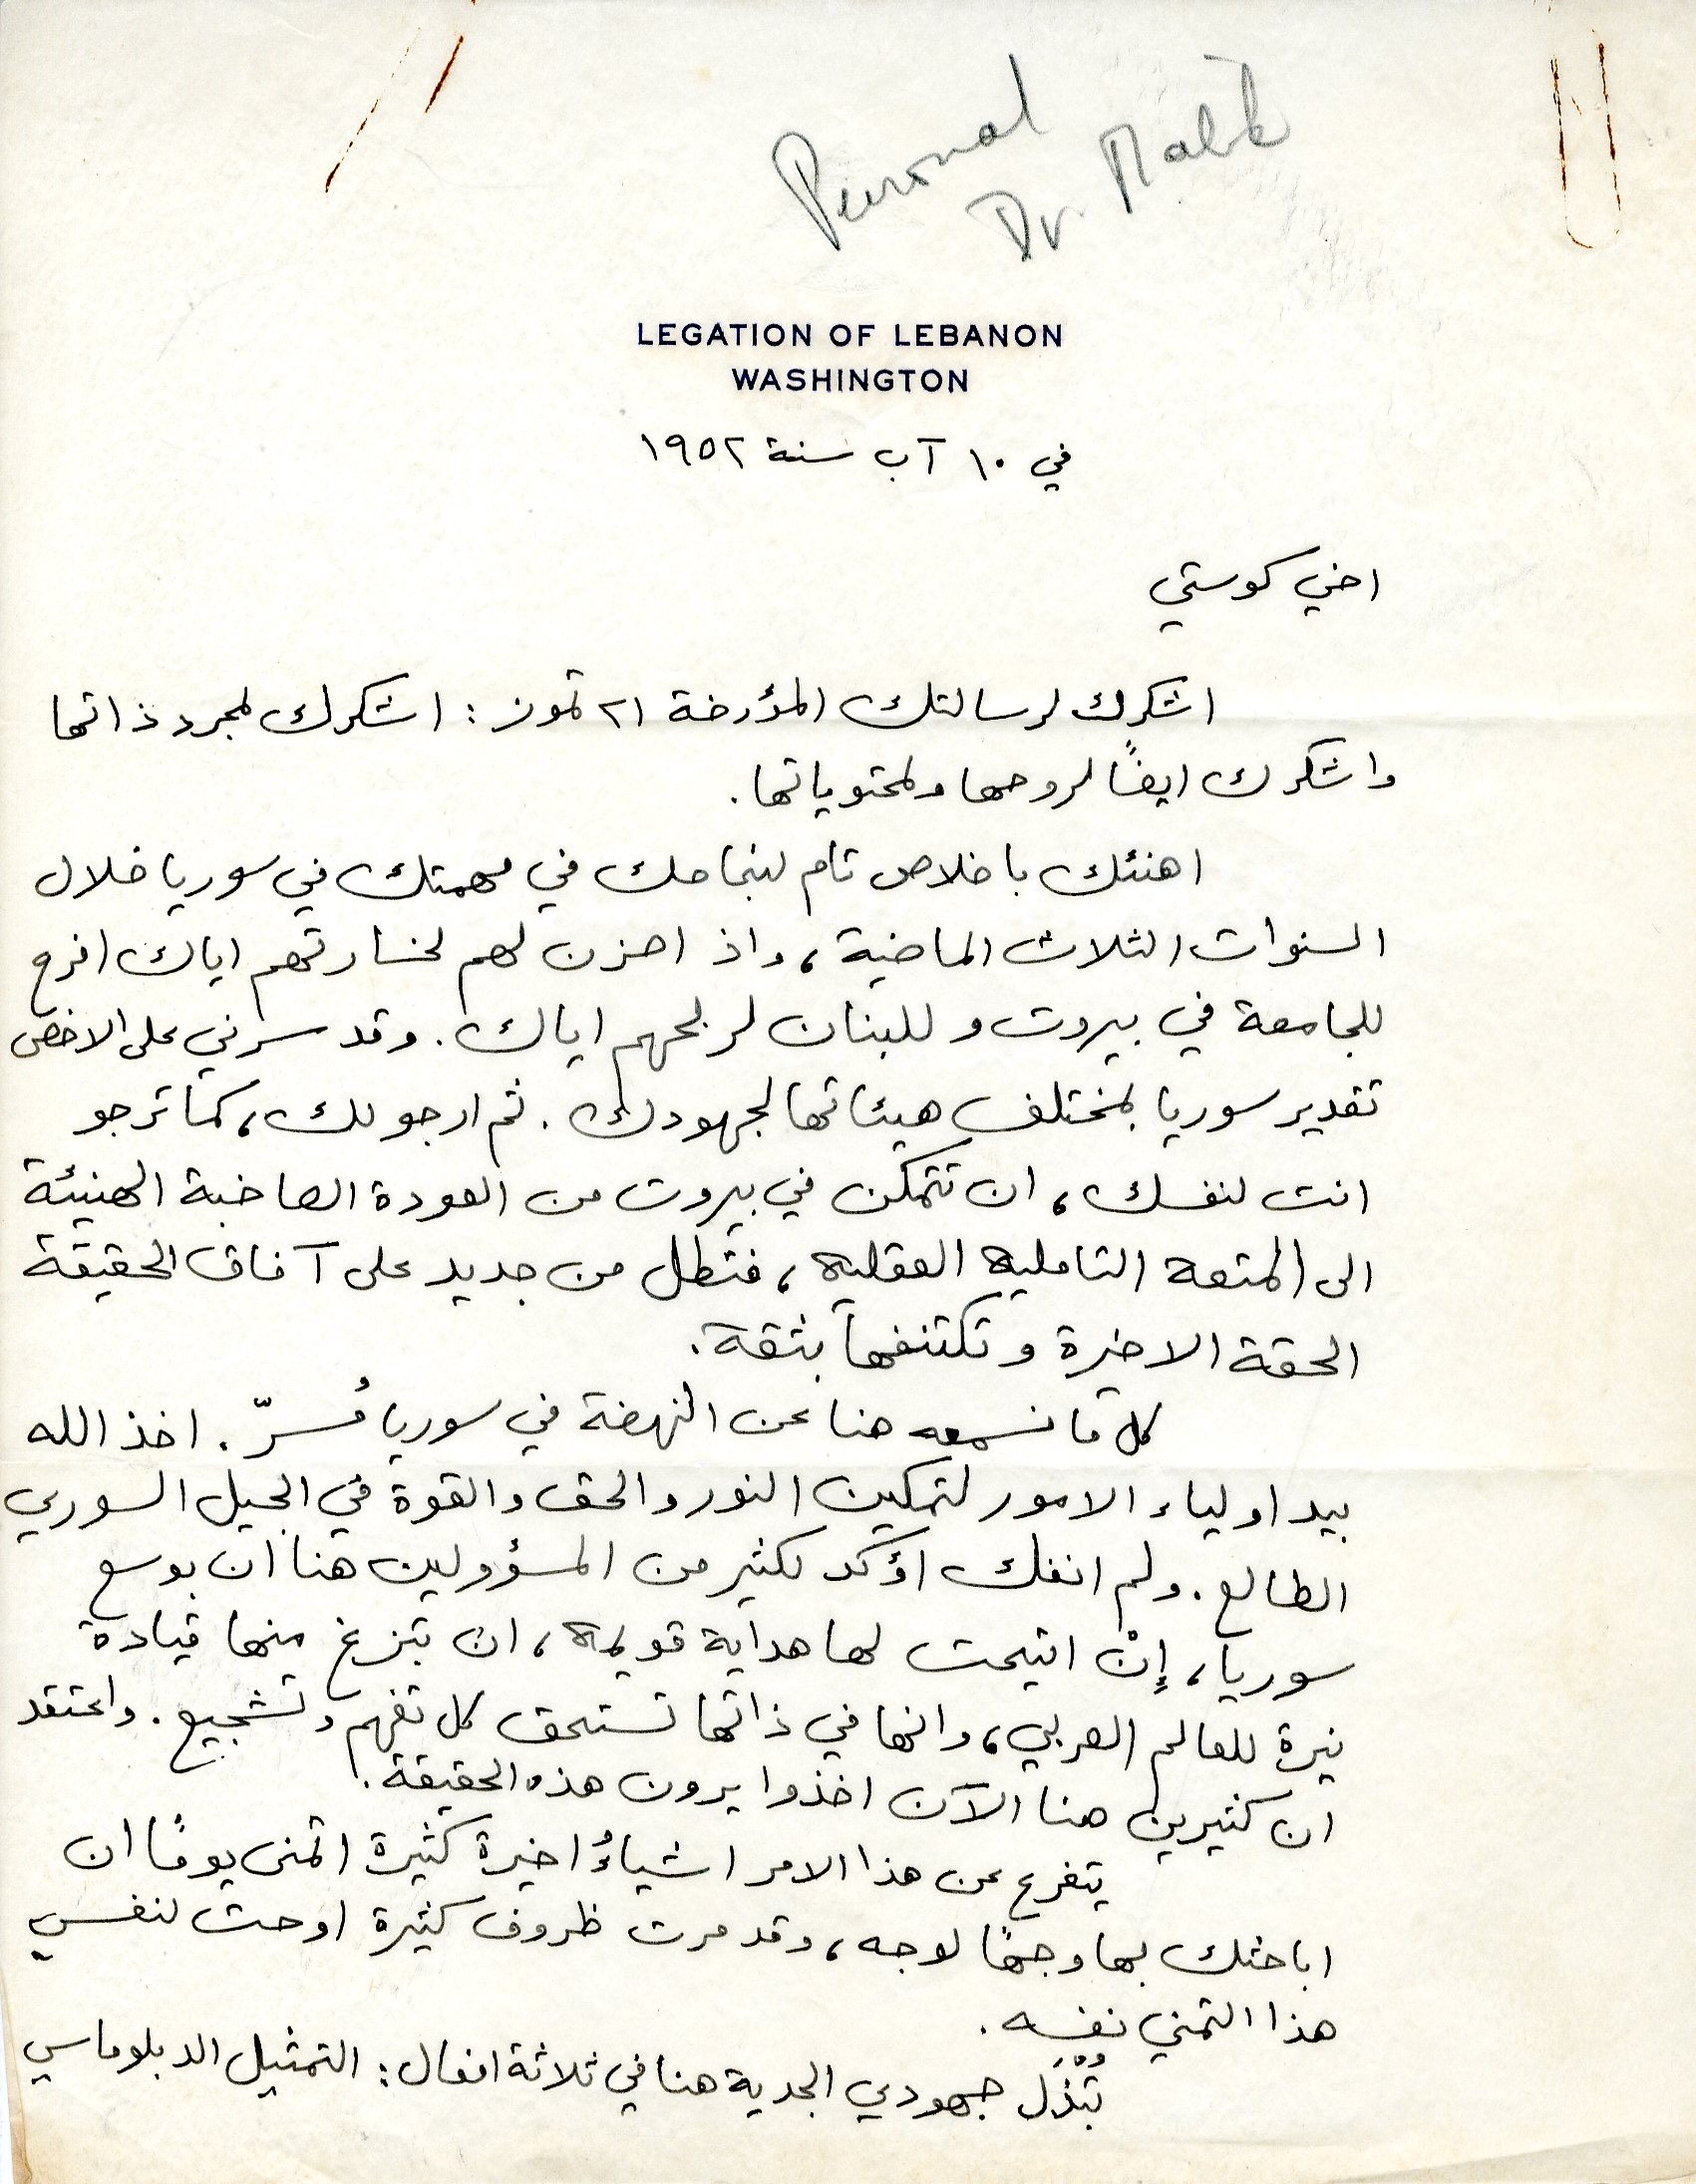 Personal
Dr. Malik
LEGATION OF LEBANON
WASHINGTON
في ١٠ آب سنة ١٩٥٢
اخي كوستي
اشكرك لرسالتك المؤرخة ٢١ تموز : اشكرك لمجرد ذاتها
واشكرك ايضًا لروحها ولمحتوياتها.
اهنئك باخلاص تام لنجاحك في مهمتك في سوريا خلال
السنوات الثلاث الماضية، واذ احزن لهم لخسارتهم اياك افرح
للجامعة في بيروت وللبنان لربحهم اياك. وقد سرني على الاخص
تقدير سوريا بمختلف هيئاتها لجهودك. ثم ارجو لك، كما ترجو
انت لنفسك، ان تتمكن في بيروت من العودة الصاخبة الهنيئة
الى المتعة التاملية العقلية، فتطل من جديد على آفاق الحقيقة
الحقة الاخيرة وتكتنفها بثقة.
كل ما نسمعه هنا عن النهضة في سوريا مُسرّ. اخذ الله
بيد اولياء الامور لتمكين النور والحق والقوة في الجيل السوري
الطالع. ولم انفك اؤكد لكثير من المسؤولين هنا ان بوسع
سوريا، إنْ اتيحت لها هداية قويمة، ان تبزغ منها قيادة
نيرة للعالم العربي، وانها في ذاتها تستحق كل تفهم وتشجيع. واعتقد
ان كثيرين هنا الآن اخذوا يرون هذه الحقيقة.
يتفرع عن هذا الامر اشياءُ اخيرة كثيرة اتمنى يومًا ان
اباحثك بها وجهًا لوجه، وقد مرت ظروف كثيرة اوحت لنفسي
هذا التمني نفسه.
تُبْذَل جهودي الجدية هنا في ثلاثة افعال: التمثيل الدبلوماسي